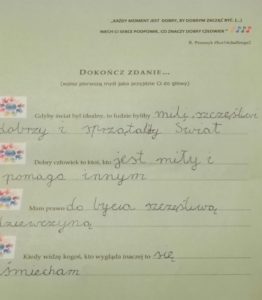 „KAŻDY MOMENT JEST DOBRY, BY DOBRYM ZACZĄĆ BYĆ. (...)
NIECH CI SERCE PODPOWIE, CO ZNACZY DOBRY CZŁOWIEK"
DOKOŃCZ ZDANIE...
(wpisz pierwszą myśl jaka przyjdzie Ci do głowy)
Gdyby świat był idealny, to ludzie byliby miłą, szczęśliwi
dobrzy i sprzątałby Świat
Dobry człowiek to ktoś, kto jest miły i
pomaga innym
Mam prawo do bycia szczęśliwą
dziewczyną
Kiedy widzę kogoś, kto wygląda inaczej to się
śmiecham